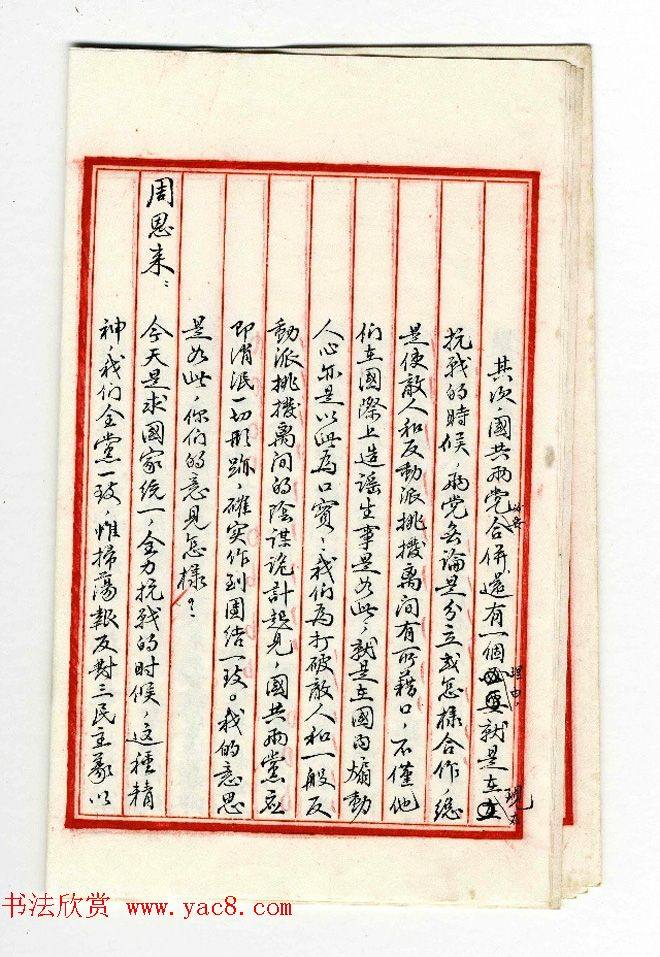 其次，國共兩党必要合併，還有一個理由，就是在現在
抗戰的時候，兩党無論是分立或怎樣合作，總
是使敵人和反動派挑撥离间有所藉口，不僅他
们在國際上造谣生事是如此，就是在國内煽動
人心亦是以此為口實，我们為打破敵人和一般反
動派挑撥离间的陰謀诡计起見，國共兩黨應
即消泯一切形跡，確实作到團结一致。我的意思
是如此，你们的意見怎樣？
周恩来：
今天是求國家统一，全力抗戰的时候，这種精
神，我们全黨一致，惟掃蕩報反對三民主義以
书法欣赏 www.yac8.com